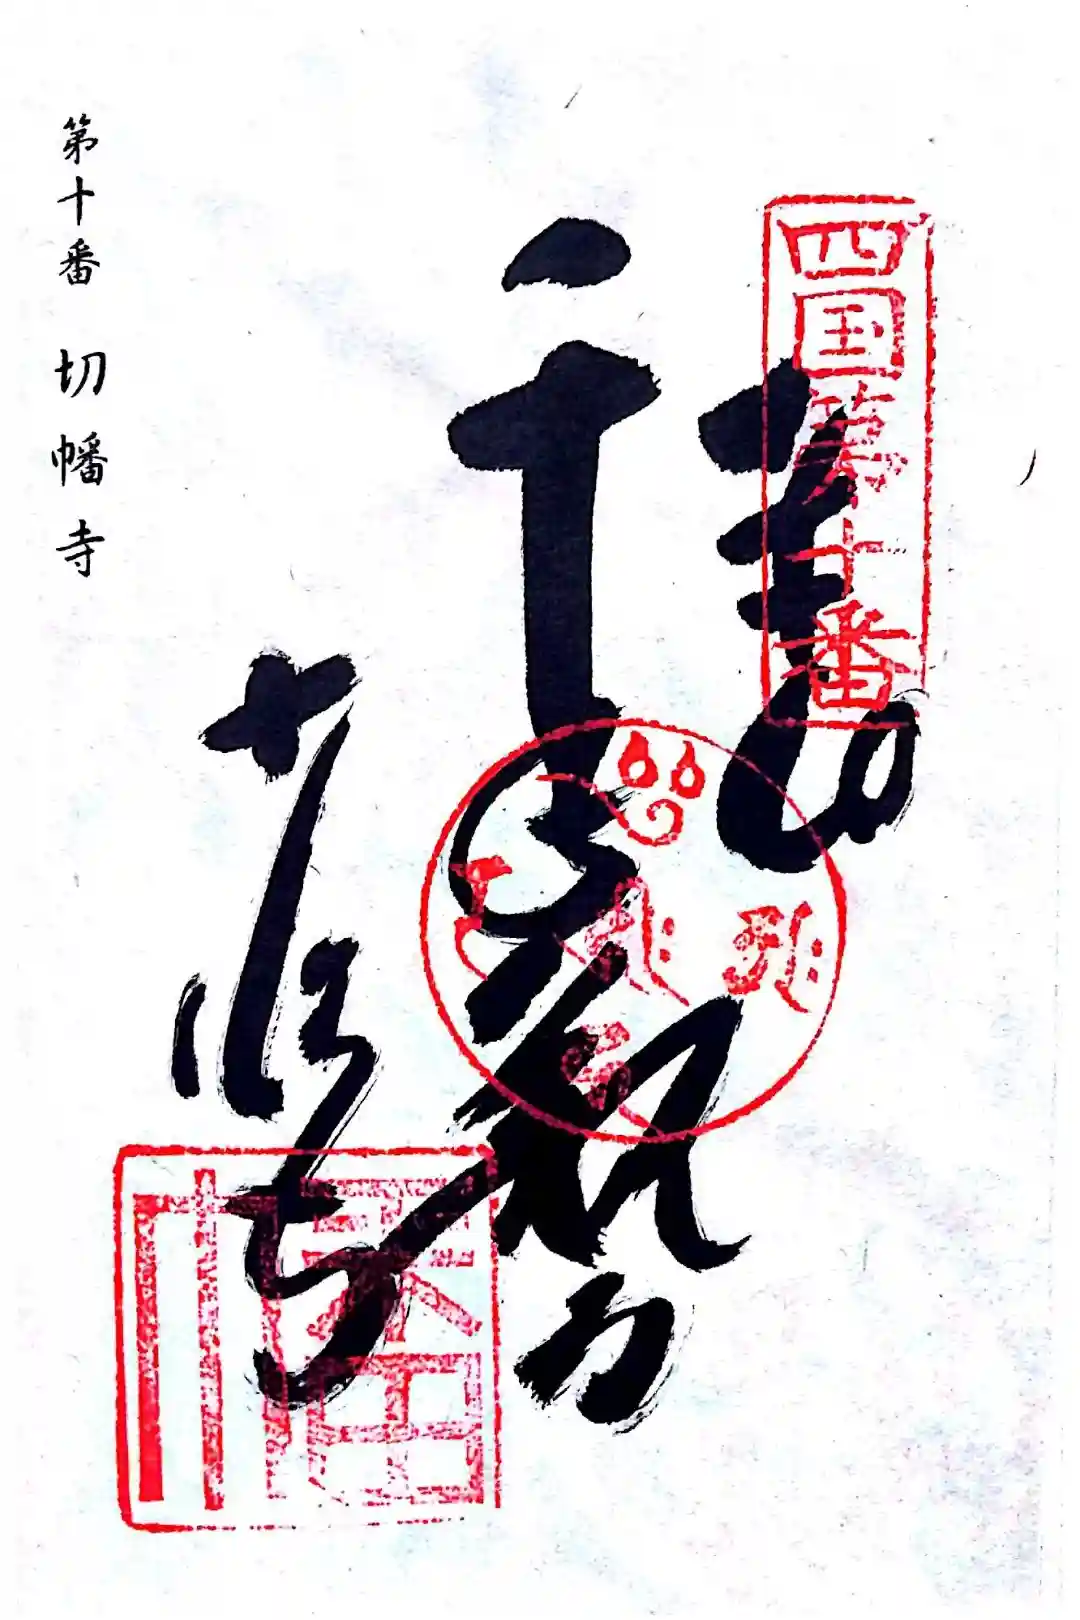 四国第十番
奉納
千手観音
切幡寺
第十番 切幡寺